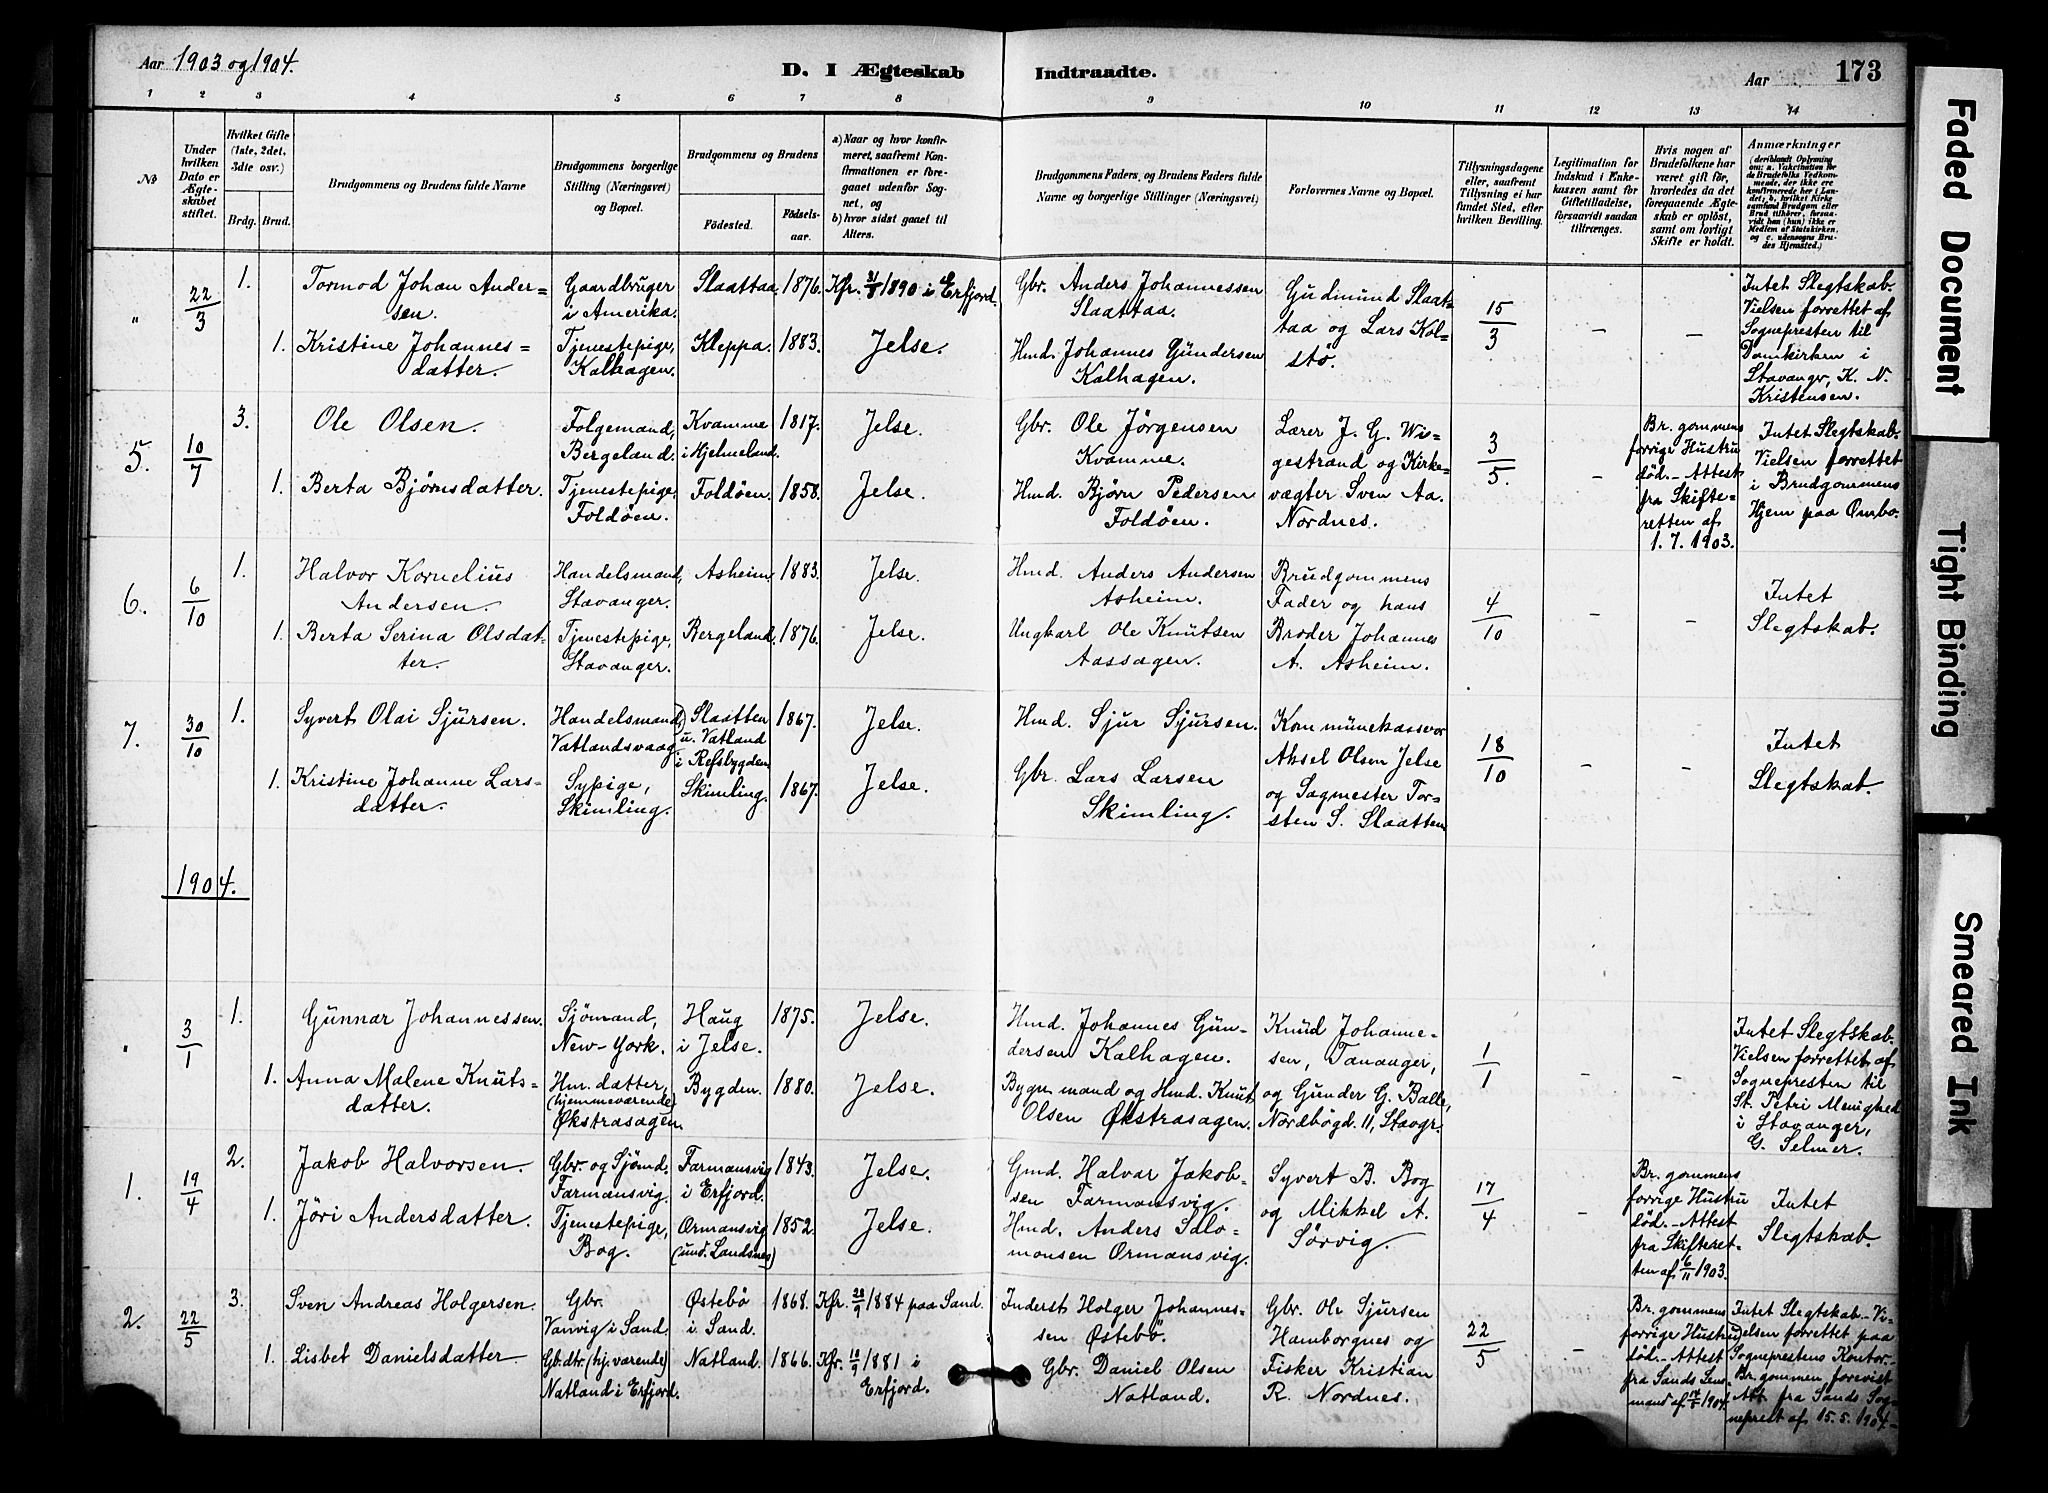 Aar 1903 og 1904.
D. I Ægteskab Indtraadte.
Aar 173
1 2 3 4 5 6 7 8 9 10 11 12 13 14
No
Under hvilken Dato er Ægteskabet stiftet.
Hvilket Gifte (1ste, 2det, 3die osv.)
Brdg. Brud.
Brudgommens og Brudens fulde Navne
Brudgommens borgerlige Stilling (Næringsvei) og Bopæl.
Brudgommens og Brudens
Fødested. Fødsels-aar.
a) Naar og hvor konfirmeret, saafremt Konfirmationen er foregaaet udenfor Sognet, og
b) hvor sidst gaaet til Alters.
Brudgommens Faders, og Brudens Faders fulde Navne og borgerlige Stillinger (Næringsvei)
Forlovernes Navne og Bopæl.
Tillysningsdagene eller, saafremt Tillysning ei har fundet Sted, efter hvilken Bevilling.
Legitimation for Indskud i Enkekassen samt for Giftetilladelse, forsaavidt saadan tiltrænges.
Hvis nogen af Brudefolkene har været gift før, hvorledes da det foregaaende Ægteskab er opløst, samt om lovligt Skifte er holdt.
Anmærkninger
(deriblandt Oplysning om: a. Vakcination for de Brudefolks Vedkommende, der ikke ere konfirmerede her i Landet, b. hvilket Kirkesamfund Brudgom eller Brud tilhører, forsaavidt han (hun) ikke er Medlem af Statskirken, og c. udensogns Brudes Hjemsted.)
" 22/3 1. Tormod Johan Andersen. Gaardbruger i Amerika. Slaattaa. 1876. Kfr. 31/8 1890 i Erfjord. Gbr. Anders Johannessen Slaattaa. Gudmund Slaattaa og Lars Kolstø. 15/3 - -
1. Kristine Johannes=datter. Tjenestepige, Kalhagen. Kleppa. 1883. Jelse. Hmd. Johannes Gundersen Kalhagen.
Intet Slegtskab. Vielsen forrettet af Sognepresten til Domkirken i Stavanger, K. N. Kristensen.
5. 10/7 3. Ole Olsen. Folgemand, Bergeland. Kvamme i Hjelmeland. 1817. Jelse. Gbr. Ole Jörgensen Kvamme. Lærer J. G. Wigestrand og Kirkevægter Sven Aa. Nordnes. 3/5. -
1. Berta Bjørnsdatter. Tjenestepige, Foldöen. Foldöen. 1858. Jelse. Hmd. Bjørn Pedersen Foldöen.
Br. gommens forrige Hustru död. - Attest fra Skifteretten af 1. 7. 1903.
Intet Slegtskab. Vielsen forrettet i Brudgommens Hjem paa Ombo.
6. 6/10 1. Halvor Kornelius Andersen. Handelsmand, Stavanger. Asheim 1883. Jelse. Hmd. Anders Andersen Asheim. Brudgommens Fader og hans Broder Johannes A. Asheim. 4/10 - -
1. Berta Serina Olsdatter. Tjenestepige, Stavanger. Bergeland. 1876. Jelse. Ungkarl Ole Knutsen Aassagen.
Intet Slegtskab.
7. 30/10 1. Syvert Olai Sjursen. Handelsmand, Vatlandsvaag Slaatten u. Vatland i Refsbygden. 1867. Jelse. Hmd. Sjur Sjursen. Kommunekasserer Aksel Olsen Jelse og Sagmester Torsten S. Slaatten 18/10 - -
1. Kristine Johanne Larsdatter. Sypige, Skimling. Skimling. 1867. Jelse. Gbr. Lars Larsen Skimling.
Intet Slegtskab.
1904.
" 3/1 1. Gunnar Johannessen. Sjömand, New-York. Haug i Jelse. 1875. Jelse. Hmd. Johannes Gundersen Kalhagen. Knud Johannesen, Tananger, og Gunder G. Balle, Nordbögd. 11, Stavgr. 1/1 - -
1. Anna Malene Knuts=datter. Hm. datter, (hjemmeværende) Økstrasagen. Bygden. 1880. Jelse. Bygn.mand og Hmd. Knut Olsen Økstrasagen.
Intet Slegtskab. Vielsen forrettet af Sognepresten til St. Petri Menighed i Stavanger, G. Selmer.
1. 19/4 2. Jakob Halvorsen. Gbr. og Sjömd. Farmansvig. Farmansvig i Erfjord. 1843. Jelse. Gmd. Halvar Jakobsen Farmansvig. Syvert B. Bog og Mikkel A. Sörvig. 17/4 -
1. Jöri Andersdatter. Tjenestepige, Bog. Ormansvig (und. Landsnes) 1852. Jelse. Hmd. Anders Salomonsen Ormansvig.
Br. gommens forrige Hustru död. - Attest fra Skifteretten af 6/11 1903.
Intet Slegtskab.
2. 22/5 3. Sven Andreas Holgersen. Gbr. Vanvig i Sand. Østebö i Sand. 1868. Kfr. 28/9 1884 paa Sand. Inderst Holger Johannessen Østebö. Gbr. Ole Sjursen Hamborgnes og Fisker Kristian R. Nordnes. 22/5 -
1. Lisbet Danielsdatter. Gb.dtr. (hj. værende) Natland i Erfjord. Natland. 1866. Kfr. 10/7 1881 i Erfjord. Gbr. Daniel Olsen Natland.
Br. gommens forrige Hustru död. - Attest fra Sands Lensmand af 1904.
Intet Slegtskab. - Vielsen forrettet paa Sogneprestens Kontor. - Br. gommen forevist Att. fra Sands Sogneprest af 15. 5. 1904. -
Faded Document
Tight Binding
Smeared Ink